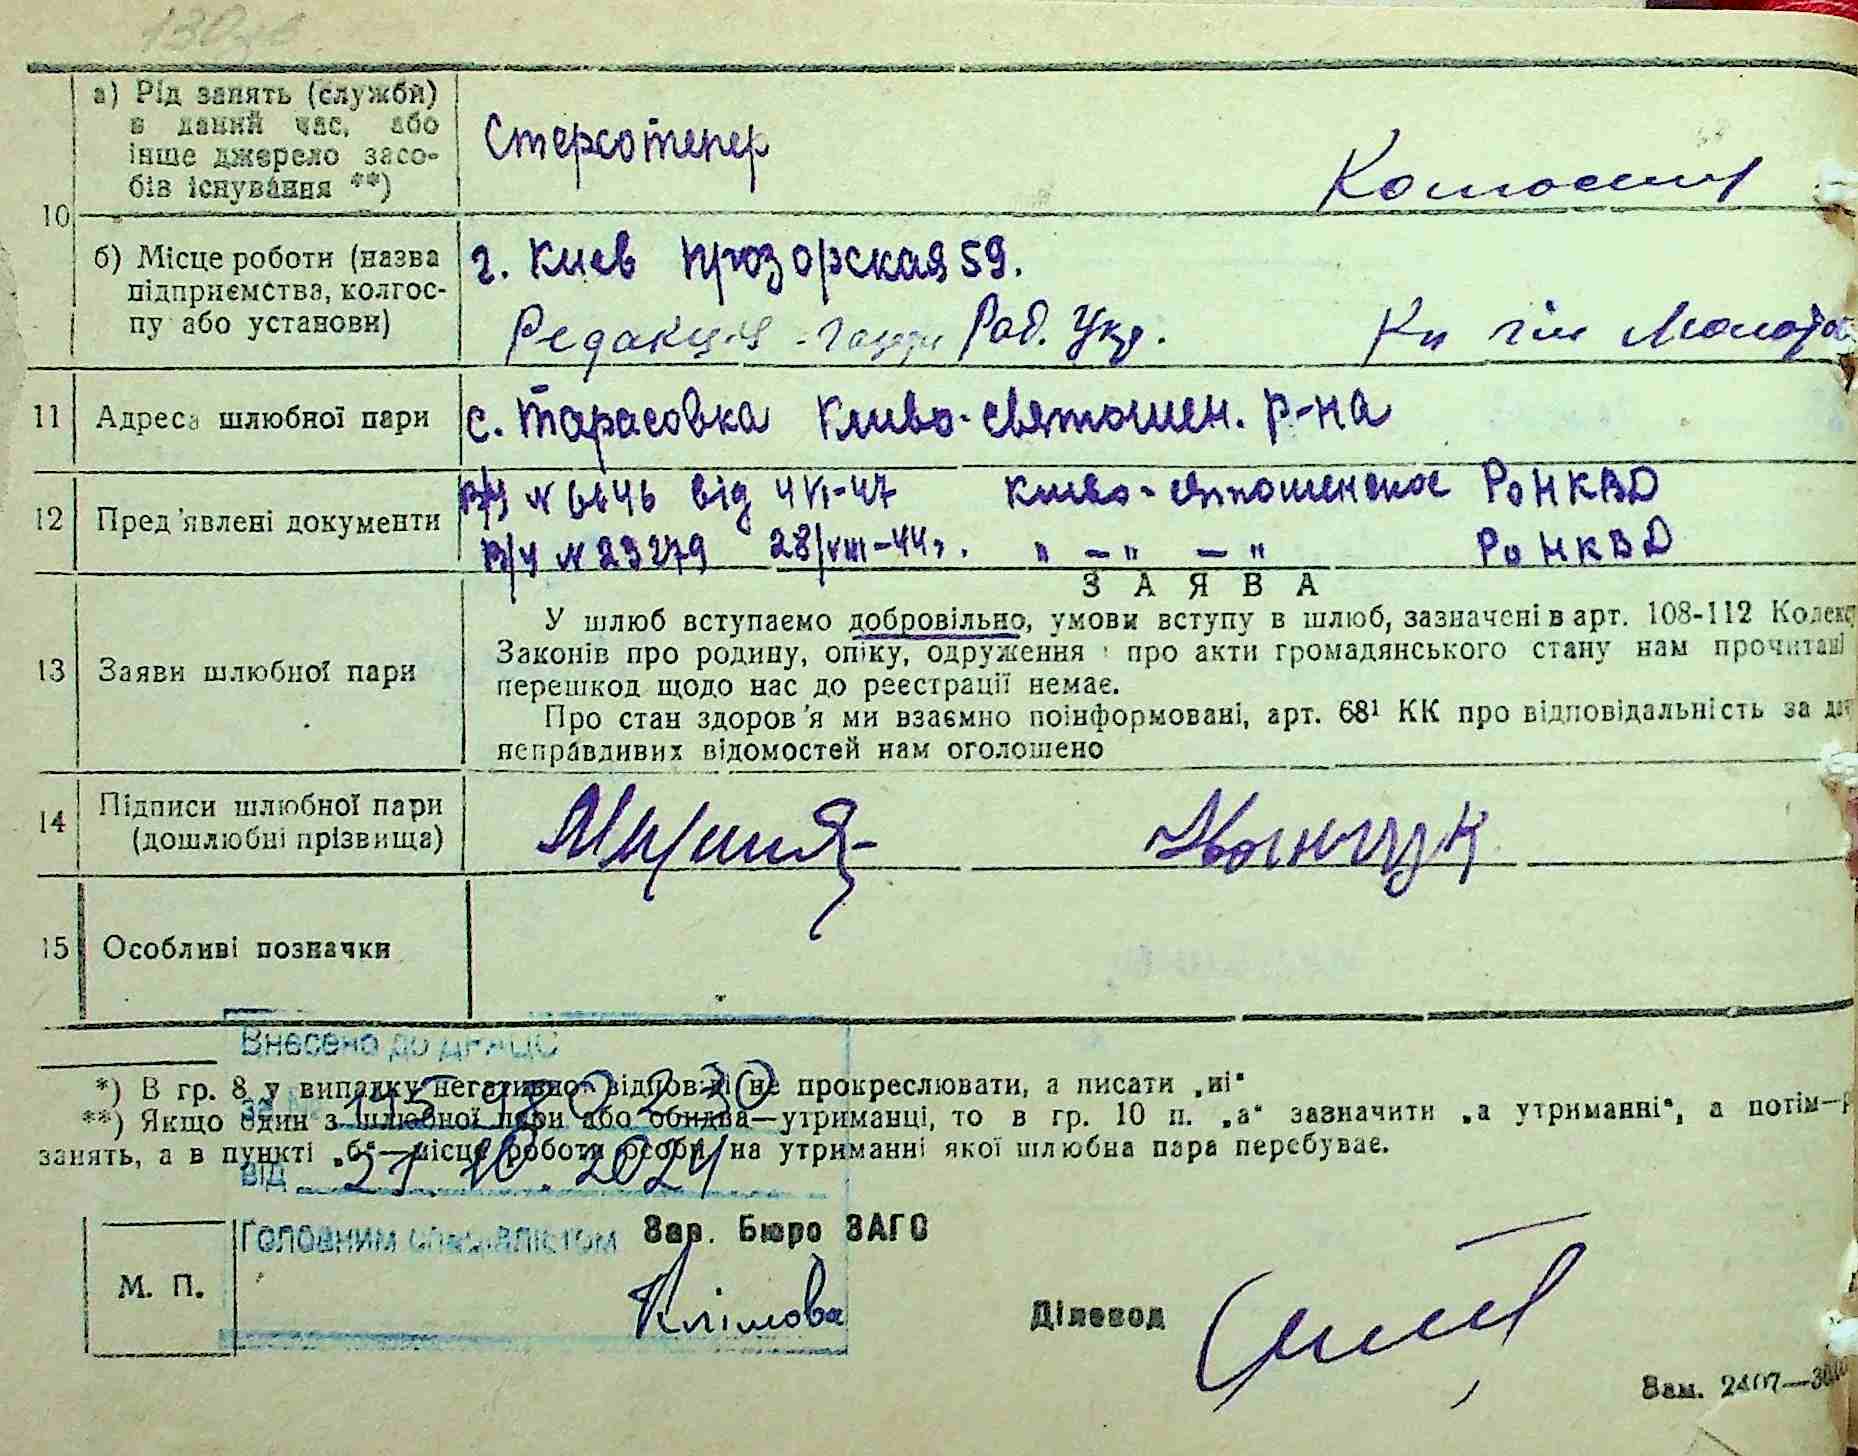 130
а) Рід занять (служби)
в даний час, або
інше джерело засо-
бів існування **)
10
б) Місце роботи (назва
г. Киев Прозорская 59.
підприємства, колгос-
пу або установи)
Редакция газети Рад. Укр.
11 Адреса шлюбної пари с. Тарасовка Киево-святошен. р-на
12 Пред'явлені документи
№ 6646 від 4 VI-47 Киево-святошенское РоНКВД
№ 23279 28/VIII-44г. " — " — " РоНКВД
ЗАЯВА
13 Заяви шлюбної пари
У шлюб вступаємо добровільно, умови вступу в шлюб, зазначені в арт. 108-112
Законів про родину, опіку, одруження про акти громадянського стану нам прочитані
перешкод щодо нас до реєстрації немає.
Про стан здоров'я ми взаємно поінформовані, арт. 68¹ КК про відповідальність за
неправдивих відомостей нам оголошено
14 Підписи шлюбної пари
(дошлюбні прізвища)
15 Особливі позначки
Внесено до ДРАЦС
*) В гр. 8 у випадку негативної відповіді не прокреслювати, а писати „ні“
**) Якщо один з шлюбної пари або обидва—утриманці, то в гр. 10 п. „а“ зазначити „а утриманні“, а потім—
занять, а в пункті „б“—місце роботи особи, на утриманні якої шлюбна пара перебуває.
від 21.10.2024
Головним спеціалістом
Зав. Бюро ЗАГС
Клімова
М. П.
Діловод
Зам. 2407—